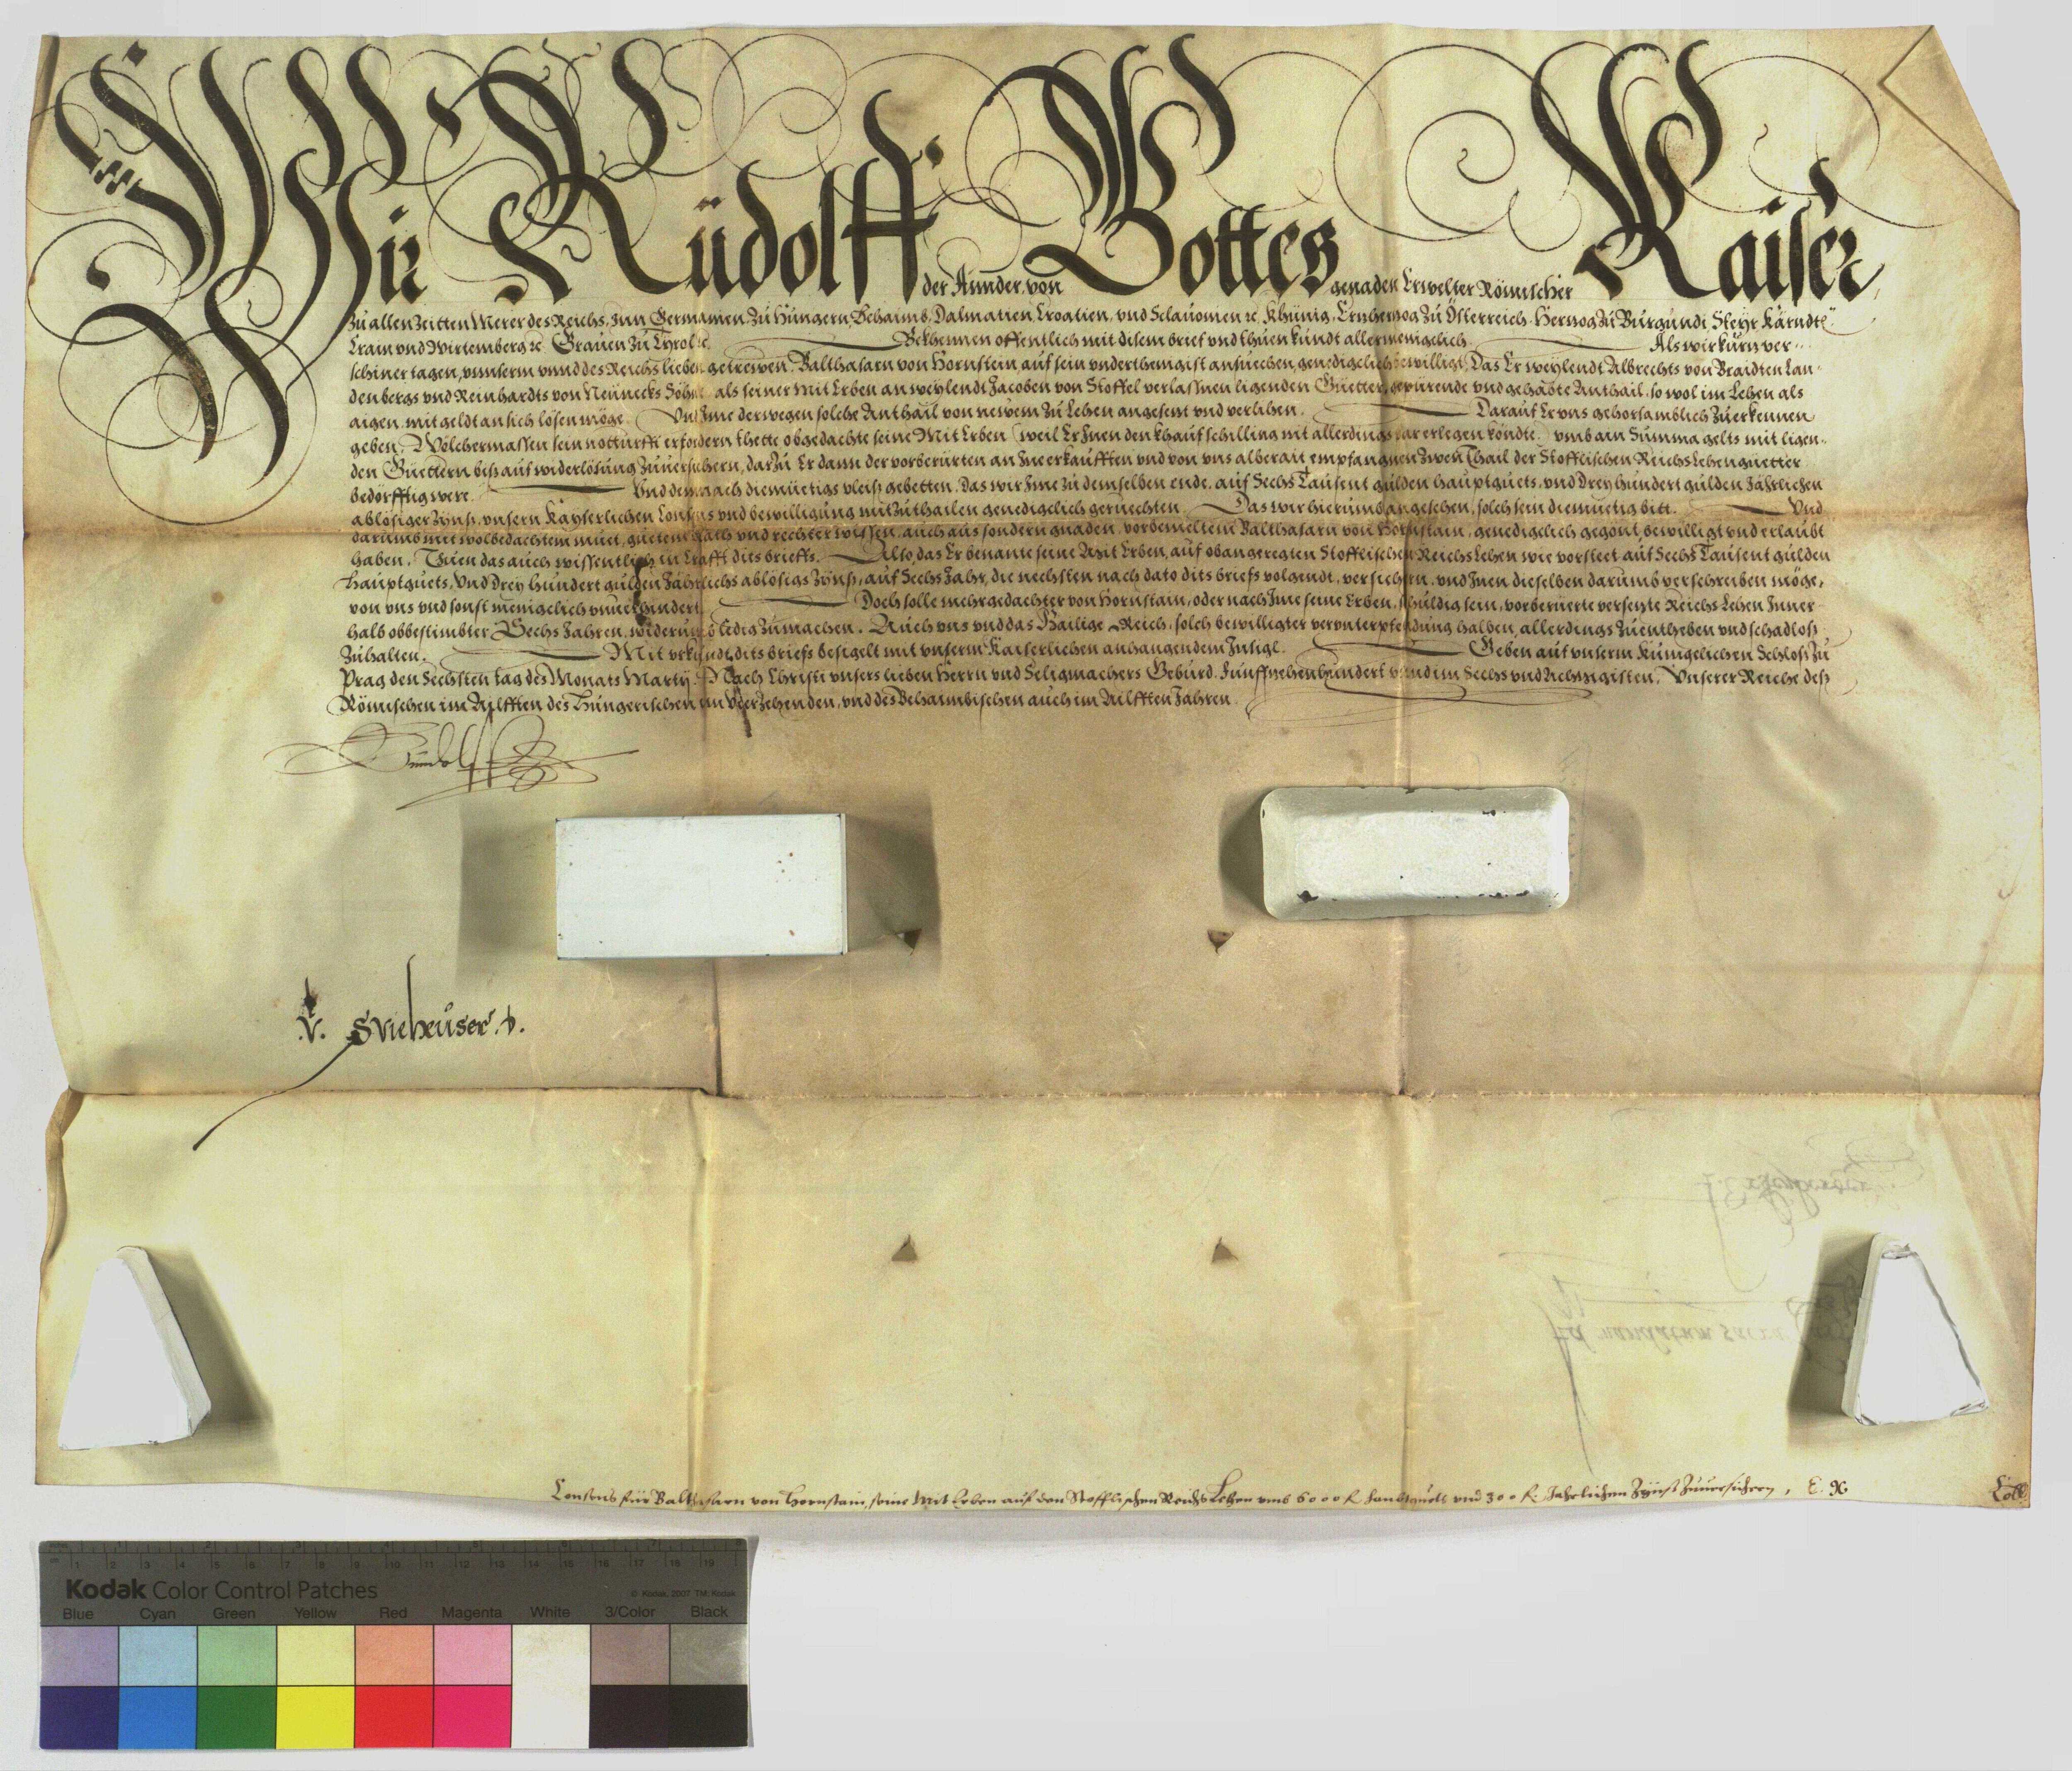 Wir Rüdolff der Annder von Gottes genaden Erwelter Römischer Kaiser,
zu allen Zeitten Merer des Reichs, Inn Germanien, zu Hungern, Behaimb, Dalmatien, Croatien, vnd Sclauonien rc. Khünig, Ertzhertzog zu Österreich, Hertzog zu Burgundi, Steyr, Kärndtē
Crain vnd Wirtemberg rc. Grauen zu Tyrol rc. Bekhennen offentlich mit disem brief vnd thuen kundt allermenigelich. Als wir kurtzuer-
schiner tagen, vnnserm vnnd des Reichs lieben getrewen, Balthasarn von Hornstein, auf sein vnderthenigist ansuechen, genedigelich bewilligt, Das Er weylendt Albrechts von Braidten Lan-
denbergs vnd Reinhardts von Neünecks Söhne als seiner Mit Erben an weylendt Jacoben von Stoffel verlassnen ligenden Güetter, gepürende vnd gehabte Anthail, so wol im Lehen als
aigen, mit geldt an sich lösen möge. Vnd Ime derwegen solche Anthail von newem zu Lehen angesetzt vnd verlihen. Darauf Er vns gehorsamblich zuerkennen
geben, Welchermassen sein notturfft erfordern thette obgedachte seine Mit Erben (weil Er Inen den khaufschilling nit allerdings par erlegen köndte) vmb ain Summa gelts mit ligen-
den Güettern biss auf widerlösung zuuersichern, darzu Er dann der vorberürten an Ine erkaufften vnd von vns alberait empfangnen zwen Thail der Stofflischen Reichs Lehengüetter
bedörfftig were. Vnd demnach diemüetigs vleiss gebetten, Das wir Ime zu demselben ende, auf Sechs Tausent gulden hauptguets, vnd Drey hundert gulden Jährlichen
ablösiger Zynss, vnsern Kayserlichen Consens vnd bewilligung mitzuthailen genedigelich geruechten. Das wir hierumb angesehen, solch sein diemuetig bitt. Vnd
darumb mit wolbedachtem muet, guetem Rath vnd rechter wissen, auch aus sondern gnaden, vorbemeltem Balthasarn von Hornstain, genedigelich gegont, bewilligt vnd erlaubt
haben, Thuen das auch wissentlich in Crafft dits brieffs. Also, das Er benante seine Mit Erben, auf obangeregten Stofflischen Reichs Lehen wie vorsteet auf Sechs Tausent gulden
hauptguets, Vnd Drey hundert gulden Jährlichs ablösigs Zynss, auf Sechs Jahr, die nechsten nach dato dits briefs volgendt, versichern, vnd Inen dieselben darumb verschreiben möge,
von vns vnd sonst menigelich vnuerhindert. Doch solle mehrgedachter von Hornstain, oder nach Ime seine Erben, schuldig sein, vorberuerte versetzte Reichs Lehen Inner-
halb obbestimbter Sechs Jahren, widerumb ledig zumachen. Auch vns vnd das Hailige Reich, solch bewilligter verunterpfendung halben, allerdings zuentheben vnd schadloss
zuhalten. Mit vrkundt dits briefs besigelt mit vnserm Kaiserlichen anhangendem Insigl. Geben auf vnserm Künigelichen Schloss zu
Prag den Sechsten tag des Monats Martÿ. Nach Christi vnsers lieben Herrn vnd Seligmachers Geburd, Fünffzehenhundert vnnd im Sechs vnd Achtzigisten. Vnserer Reiche dess
Römischen im Ailfften des Hungerischen im Vierzehenden, vnd des Behaimbischen auch im Ailfften Jahren.
Rudolff
V. S Vieheuser. D.
Ad mandatum sacrae
Consens für Balthasarn von Hornstain, seine Mit Erben auf den Stofflischen Reichs Lehen vmb 6000 f. haubtguets vnd 300 f. Jährlichen Zynß zuuersichern,
Coll
Kodak Color Control Patches
© Kodak, 2007 TM: Kodak
Blue Cyan Green Yellow Red Magenta White 3/Color Black